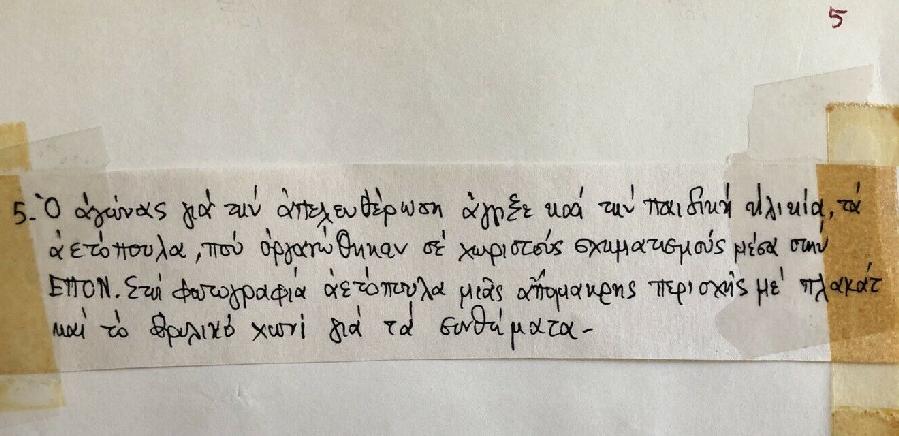 5
5- Ὁ ἀγώνας γιά τήν ἀπελευθέρωση ἄγγιξε καί τήν παιδική ἡλικία, τά
ἀετόπουλα, πού ὀργανώθηκαν σέ χωριστούς σχηματισμούς μέσα στήν
ΕΠΟΝ. Στή φωτογραφία ἀετόπουλα μιᾶς ἀπόμακρης περιοχῆς μέ πλακάτ
καί τό θρυλικό χωνί γιά τά συνθήματα-